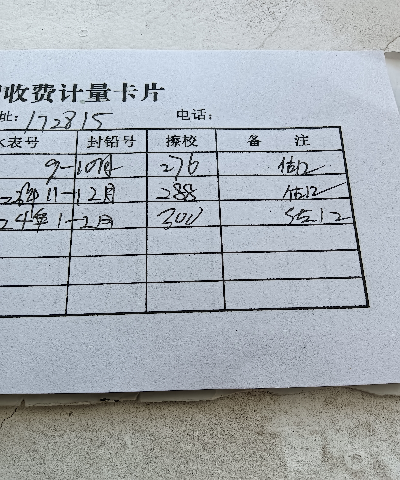 收费计量卡片
址: 172815 电话:
水表号 封铅号 擦校 备注
9-10月 276 估12
23年11-12月 288 估12
24年1-2月 300 估12